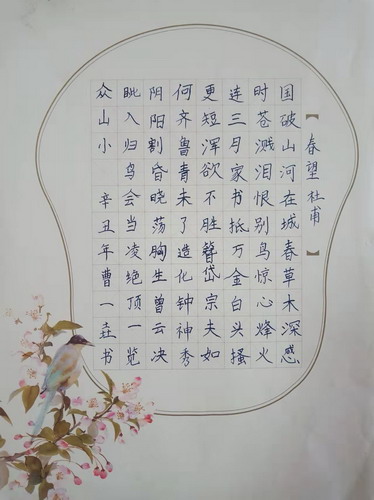 【春望 杜甫】
国破山河在城春草木深感
时苍溅泪恨别鸟惊心烽火
连三月家书抵万金白头搔
更短浑欲不胜簪岱宗夫如
何齐鲁青未了造化钟神秀
阴阳割昏晓荡胸生曾云决
眺入归鸟会当凌绝顶一览
众山小 辛丑年曹一垚书